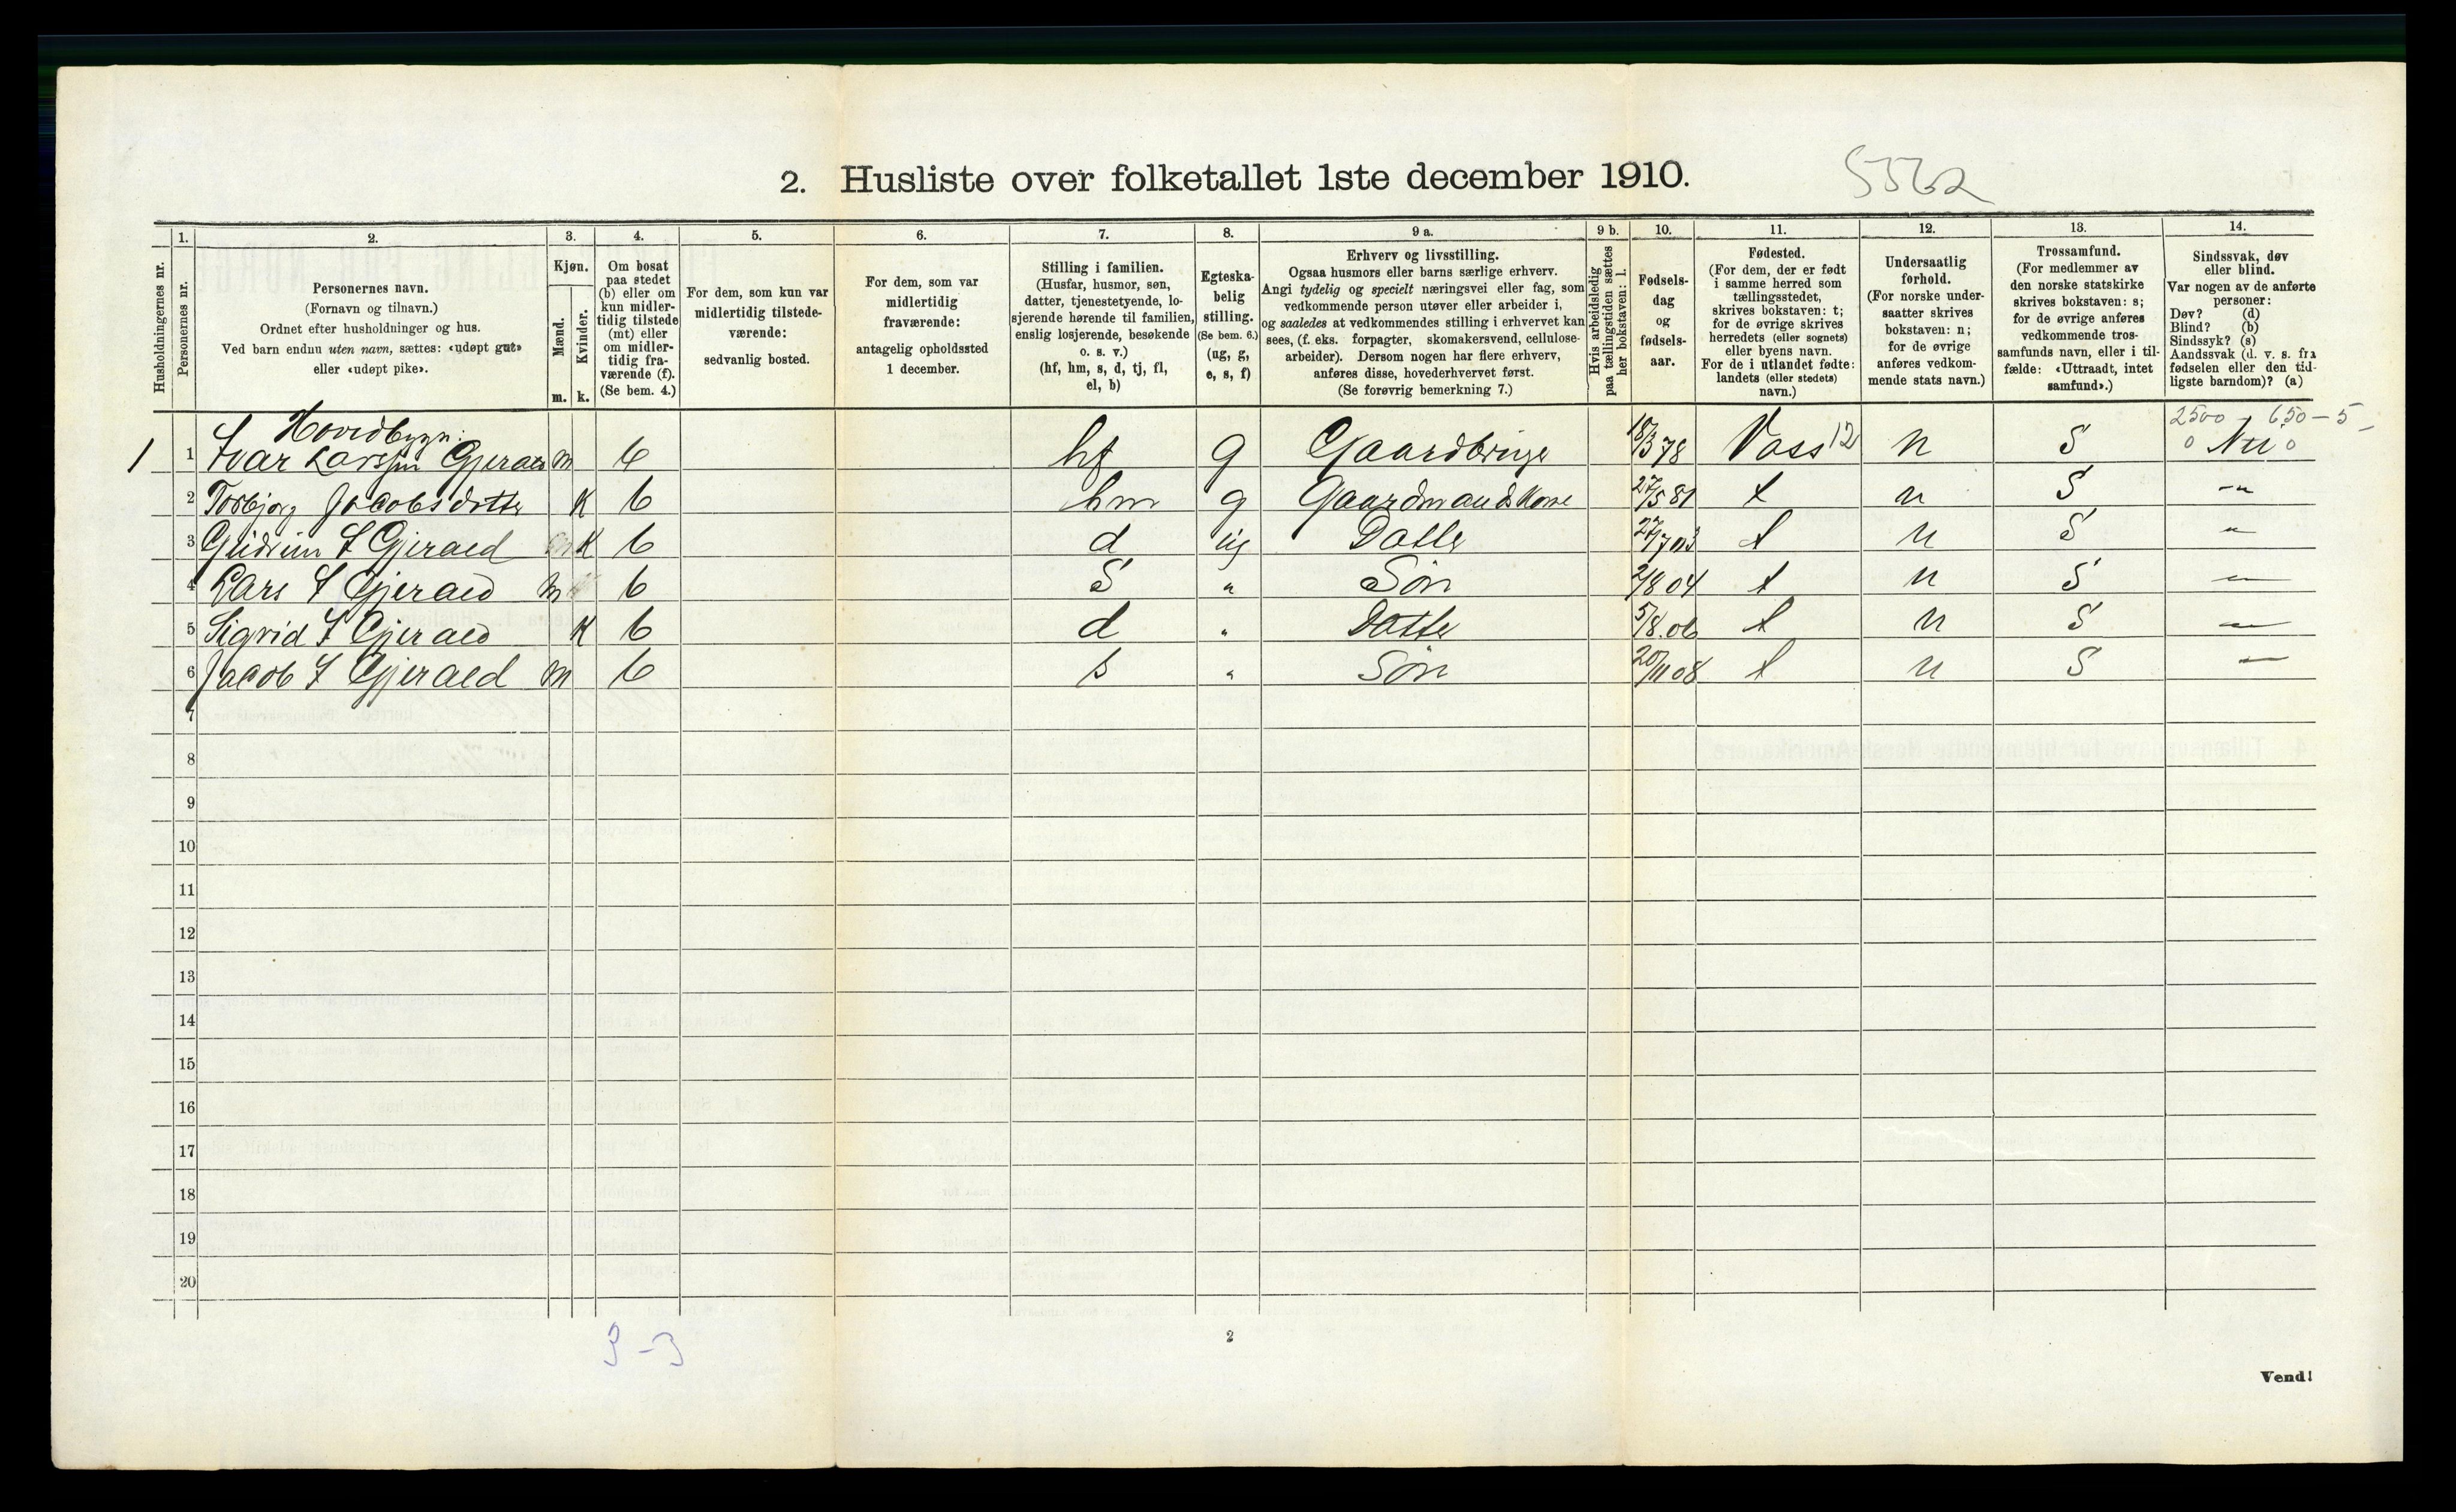 2. Husliste over folketallet 1ste december 1910.
Husholdningernes nr.
1. Personernes nr.
2. Personernes navn.
(Fornavn og tilnavn.)
Ordnet efter husholdninger og hus.
Ved barn endnu uten navn, sættes: «udøpt gut»
eller «udøpt pike».
3. Kjøn.
Mænd. m.
Kvinder. k.
4. Om bosat
paa stedet
(b) eller om
kun midler-
tidig tilstede
(mt) eller
om midler-
tidig fra-
værende (f).
(Se bem. 4.)
5. For dem, som kun var
midlertidig tilstede-
værende:
sedvanlig bosted.
6. For dem, som var
midlertidig
fraværende:
antagelig opholdssted
1 december.
7. Stilling i familien.
(Husfar, husmor, søn,
datter, tjenestetyende, lo-
sjerende hørende til familien,
enslig losjerende, besøkende
o. s. v.)
(hf, hm, s, d, tj, fl,
el, b)
8. Egteska-
belig
stilling.
(Se bem. 6.)
(ug, g,
e, s, f)
9 a. Erhverv og livsstilling.
Ogsaa husmors eller barns særlige erhverv.
Angi tydelig og specielt næringsvei eller fag, som
vedkommende person utøver eller arbeider i,
og saaledes at vedkommendes stilling i erhvervet kan
sees, (f. eks. forpagter, skomakersvend, cellulose-
arbeider). Dersom nogen har flere erhverv,
anføres disse, hovederhvervet først.
(Se forøvrig bemerkning 7.)
9 b. Hvis arbeidsledig
paa tællingstiden sættes
her bokstaven: l.
10. Fødsels-
dag
og
fødsels-
aar.
11. Fødested.
(For dem, der er født
i samme herred som
tællingsstedet,
skrives bokstaven: t;
for de øvrige skrives
herredets (eller sognets)
eller byens navn.
For de i utlandet fødte:
landets (eller stedets)
navn.)
12. Undersaatlig
forhold.
(For norske under-
saatter skrives
bokstaven: n;
for de øvrige
anføres vedkom-
mende stats navn.)
13. Trossamfund.
(For medlemmer av
den norske statskirke
skrives bokstaven: s;
for de øvrige anføres
vedkommende tros-
samfunds navn, eller i til-
fælde: «Uttraadt, intet
samfund».)
14. Sindssvak, døv
eller blind.
Var nogen av de anførte
personer:
Døv? (d)
Blind? (b)
Sindssyk? (s)
Aandssvak (d. v. s. fra
fødselen eller den tid-
ligste barndom)? (a)
2500 650 - 5
Hovidbygn:
1 1 Ivar Larssen Gjerald m b hf g Gaardbruge 18/3 78 Vass 12 n S
2 Torbjørg Jacobsdotter K b hm g Gaardmandskone 27/5 81 t n S
3 Gudrun I Gjerald K b d ug Datte 27/7 03 t n S
4 Lars I Gjerald m b S " Søn 2/8 04 t n S
5 Sigrid I Gjerald K b d " Datte 5/8.06 t n S
6 Jacob I Gjerald m b s " Søn 20/11 08 t n S
7
8
9
10
11
12
13
14
15
16
17
18
19
20
3-3
2
Vend!